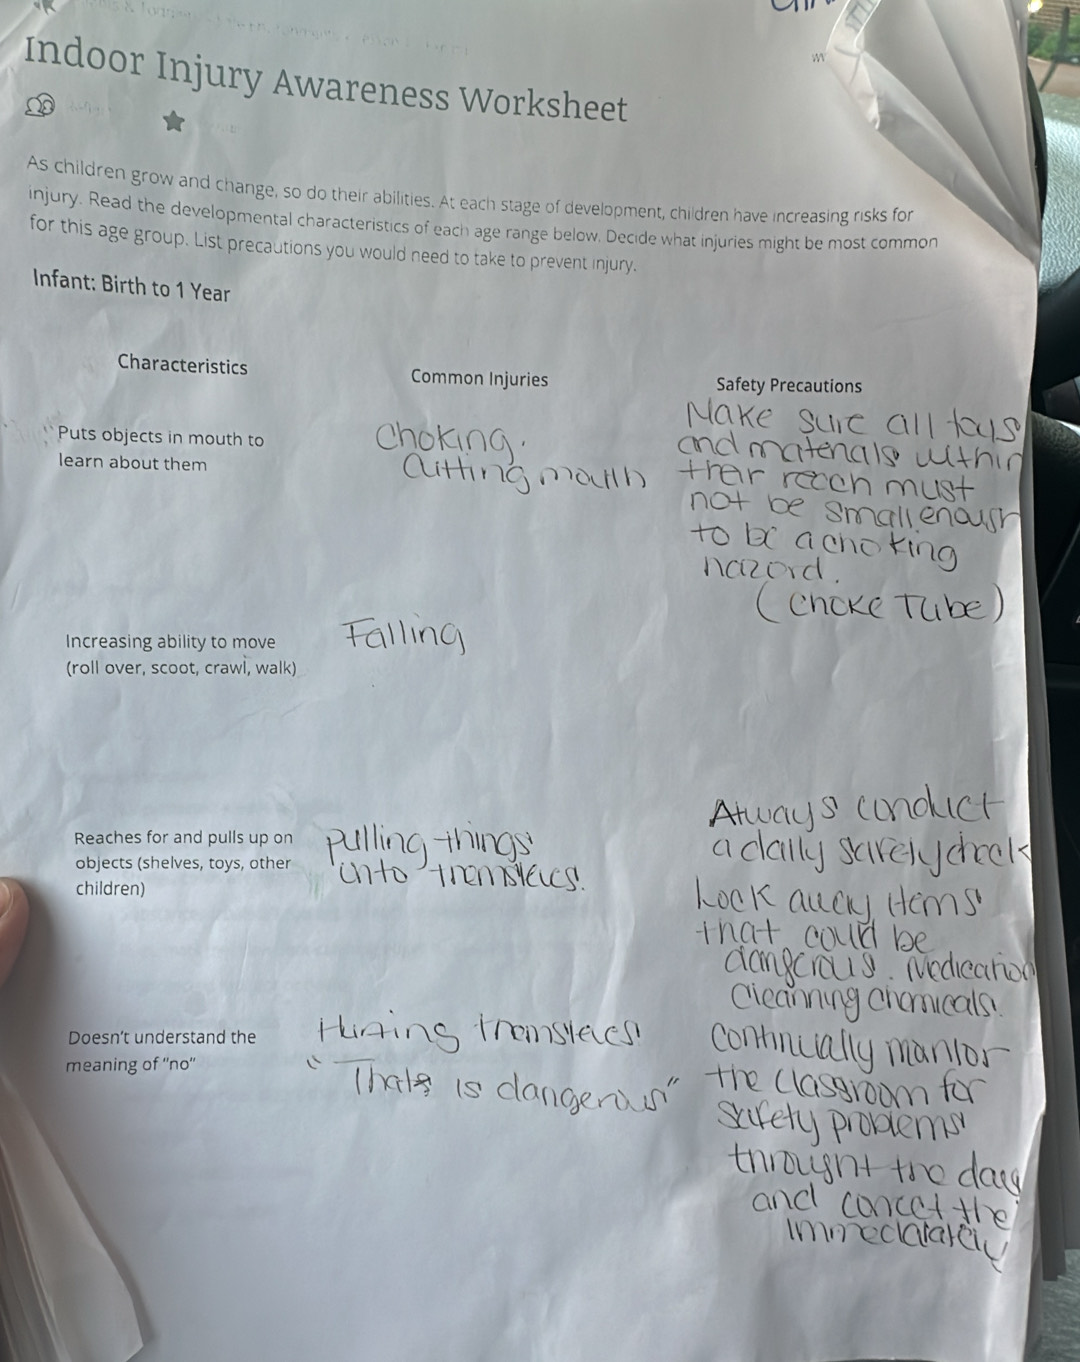 Indoor Injury Awareness Worksheet
As children grow and change, so do their abilities. At each stage of development, children have increasing risks for
injury. Read the developmental characteristics of each age range below. Decide what injuries might be most common
for this age group. List precautions you would need to take to prevent injury.
Infant: Birth to 1 Year
Characteristics
Common Injuries
Safety Precautions
Puts objects in mouth to
learn about them
Choking.
Cutting mouth
Make sure all toys
and materials within
their reach must
not be small enough
to be a choking
hazord.
(Choke Tube)
Increasing ability to move
(roll over, scoot, crawl, walk)
Falling
Reaches for and pulls up on
objects (shelves, toys, other
children)
pulling things
unto themsleves.
Always conduct
a daily safety check
Lock away items
that could be
dangerous. Medication
Cleanning chemicals.
Doesn't understand the
meaning of "no"
Hurting themsleves.
"Thats is dangerous"
continually monitor
the classroom for
safety problems
throught the day
and correct the
immediatately